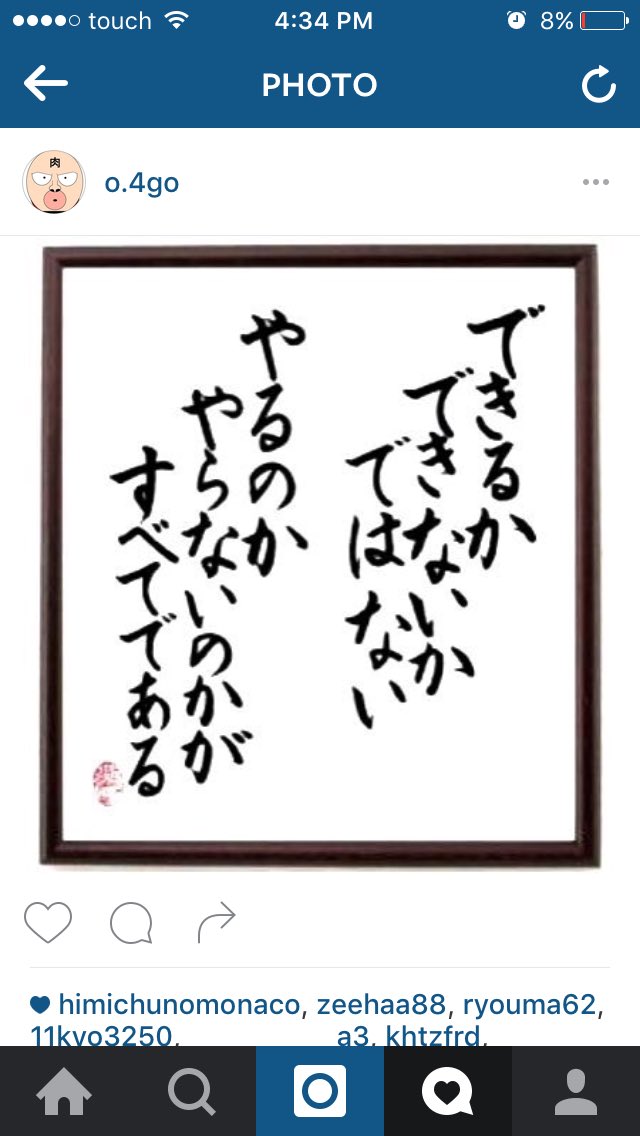 touch 4:34 PM 8%
PHOTO
肉
o.4go
できるか
できないか
ではない
やるのか
やらないのかが
すべてである
himichunomonaco, zeehaa88, ryouma62,
11kyo3250, a3, khtzfrd,